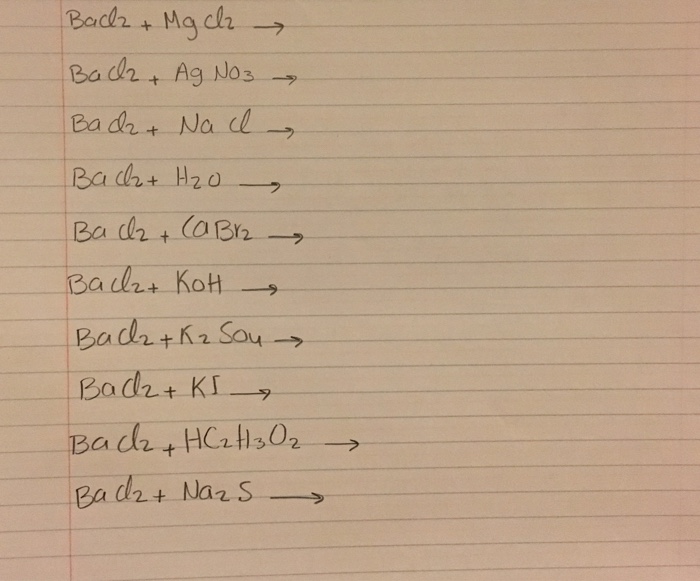 BaCl2 + MgCl2 →
BaCl2 + AgNO3 →
BaCl2 + NaCl →
BaCl2 + H2O →
BaCl2 + CaBr2 →
BaCl2 + KOH →
BaCl2 + K2SO4 →
BaCl2 + KI →
BaCl2 + HC2H3O2 →
BaCl2 + Na2S →